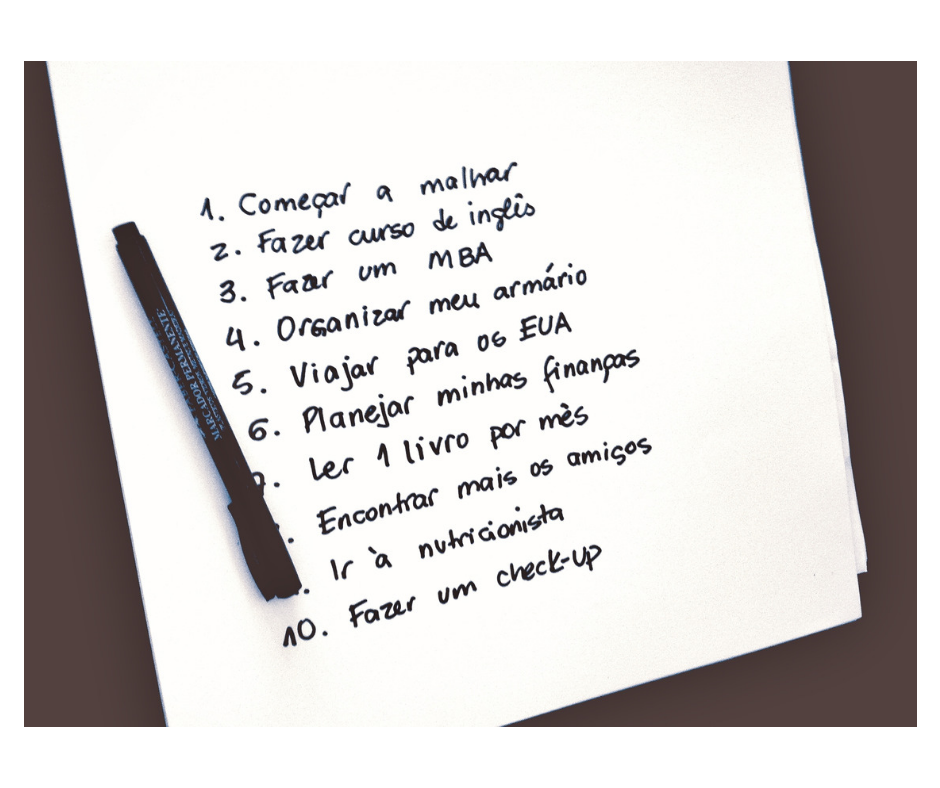 1. Começar a malhar
2. Fazer curso de inglês
3. Fazer um MBA
4. Organizar meu armário
5. Viajar para os EUA
6. Planejar minhas finanças
. Ler 1 livro por mês
. Encontrar mais os amigos
. Ir à nutricionista
10. Fazer um check-up
MARCADOR PERMANENTE